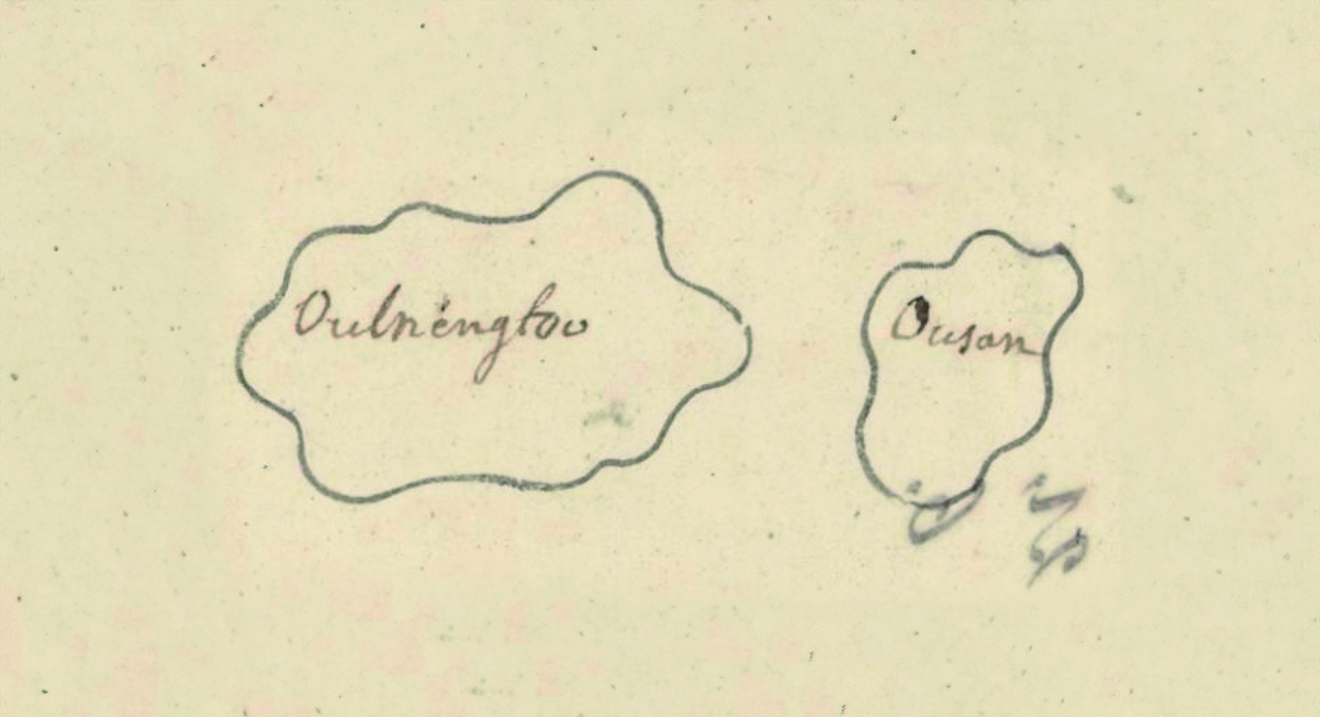 Oulnengtou
Ousan